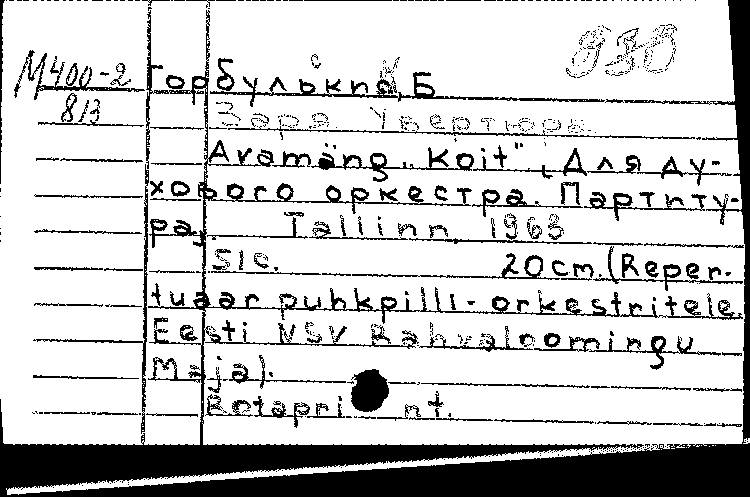 М400-2
813
930
Горбульский, Б
Заря Увертюра.
Avamäng „Koit“, [Для ду-
хового оркестра. Партиту-
ра].
Tallinn, 1963
51c. 20cm. (Reper-
tuaar puhkpilli-orkestritele.
Eesti NSV Rahvaloomingu
Maja).
Rotaprint.